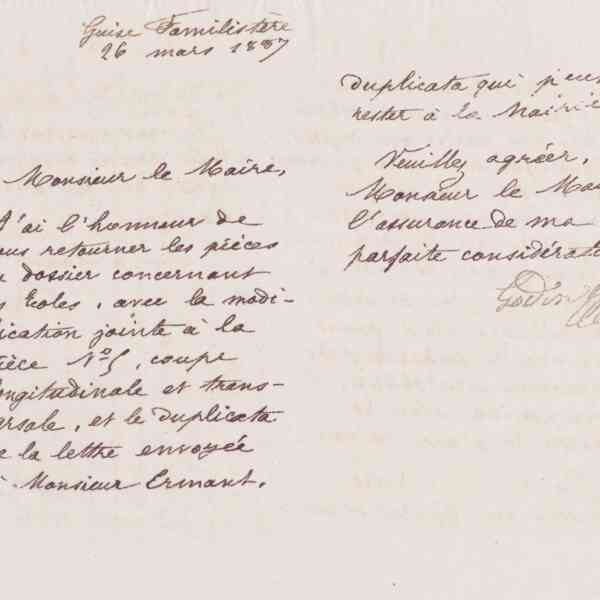 Guise Familistère
26 mars 1887
Monsieur le Maire,
J'ai l'honneur de
ous retourner les pièces
u dossier concernant
s Ecoles, avec la modi-
ication jointe à la
ièce N° 5, coupe
ongitudinale et trans-
ersale, et le duplicata
e la lettre envoyée
à Monsieur Ermant.
duplicata qui peu
rester à la Mairie
Veuillez agréer,
Monsieur le Ma
l'assurance de ma
parfaite considérat
Godin